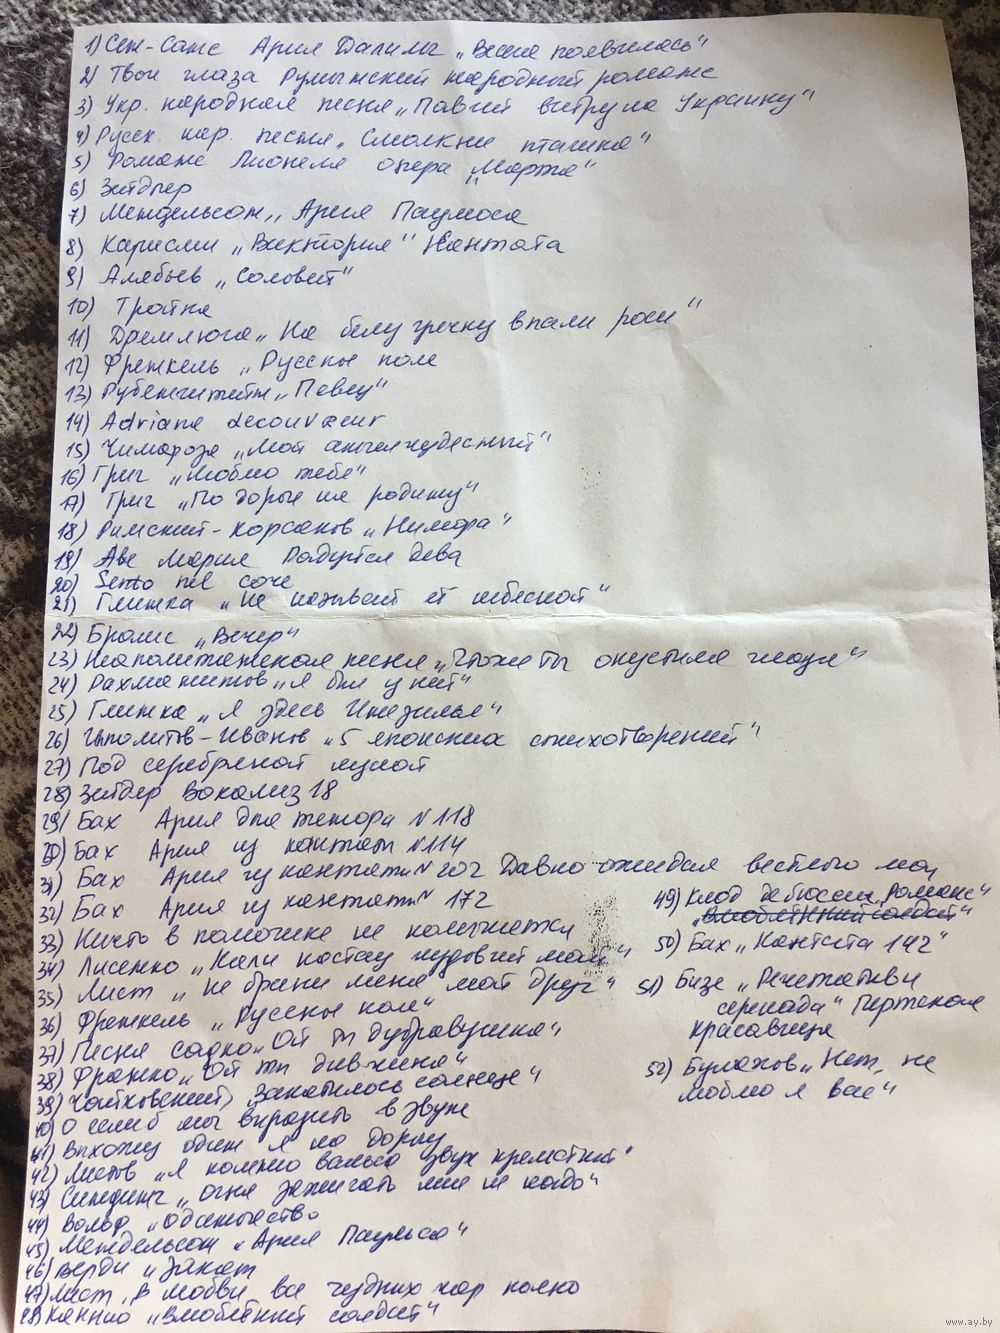 1) Сен-Санс Ария Далилы „Весна появилась"
2) Твои глаза Румынский народный романс
3) Укр. народная песня „Павий витру на Украину"
4) Русск. нар. песня „Смолкни пташка"
5) Романс Лионеля опера „Марта"
6) Зейдлер
7) Мендельсон „Ария Паулюса
8) Кариссми „Виктория" Кантата
9) Алябьев „Соловей"
10) Тройка
11) Дремлюга „На белу гречку впали роси"
12) Френкель „Русское поле
13) Рубенштейн „Певец"
14) Adriane Lecouvreur
15) Чимароза „Мой ангел чудесный"
16) Григ „Люблю тебя"
17) Григ „По дороге на родину"
18) Римский-Корсаков „Нимфа"
19) Аве Мария Радуйся дева
20) Sento nel соче
21) Глинка „Не называй её небесной"
22) Брамс „Вечер"
23) Неаполитанская песня „Что же ты опустила глаза"
24) Рахманинов „Я был у ней"
25) Глинка „Я здесь Инезилья"
26) Иполитов-Иванов „5 японских стихотворений"
27) Под серебряной луной
28) Зейдер Вокализ 18
29) Бах Ария для тенора N 118
30) Бах Ария из кантат N 114
31) Бах Ария из кантаты N 202 Давно ожидал весного мая
32) Бах Ария из кантаты N 172
33) Ничто в полюшке не колышется
34) Лисенко „Коли настав чудовий май"
35) Лист „Не брани меня мой друг"
36) Френкель „Русское поле"
37) Песня Садко „Ой ты дубравушка"
38) Франко „Ой ти дивчина"
39) Чайковский „Закатилось солнце"
40) О если б мог выразить в звуке
41) Выхожу один я на дорогу
42) Листов „Я помню вальса звук прелестный"
43) Синдинг „Огня зажигать мне не надо"
44) Вольф „Одиночество
45) Мендельсон „Ария Паульса"
46) Верди „Закат
47) Лист „В любви все чудных чар полно
48) Каннио „Влюблённый солдат"
49) Клод Дебюсси „Романс"
„Влюблённый солдат"
50) Бах „Кантата 142"
51) Бизе „Речетатив и
серенада" Пертская
красавица
52) Булахов „Нет, не
люблю я вас"
www.ay.by